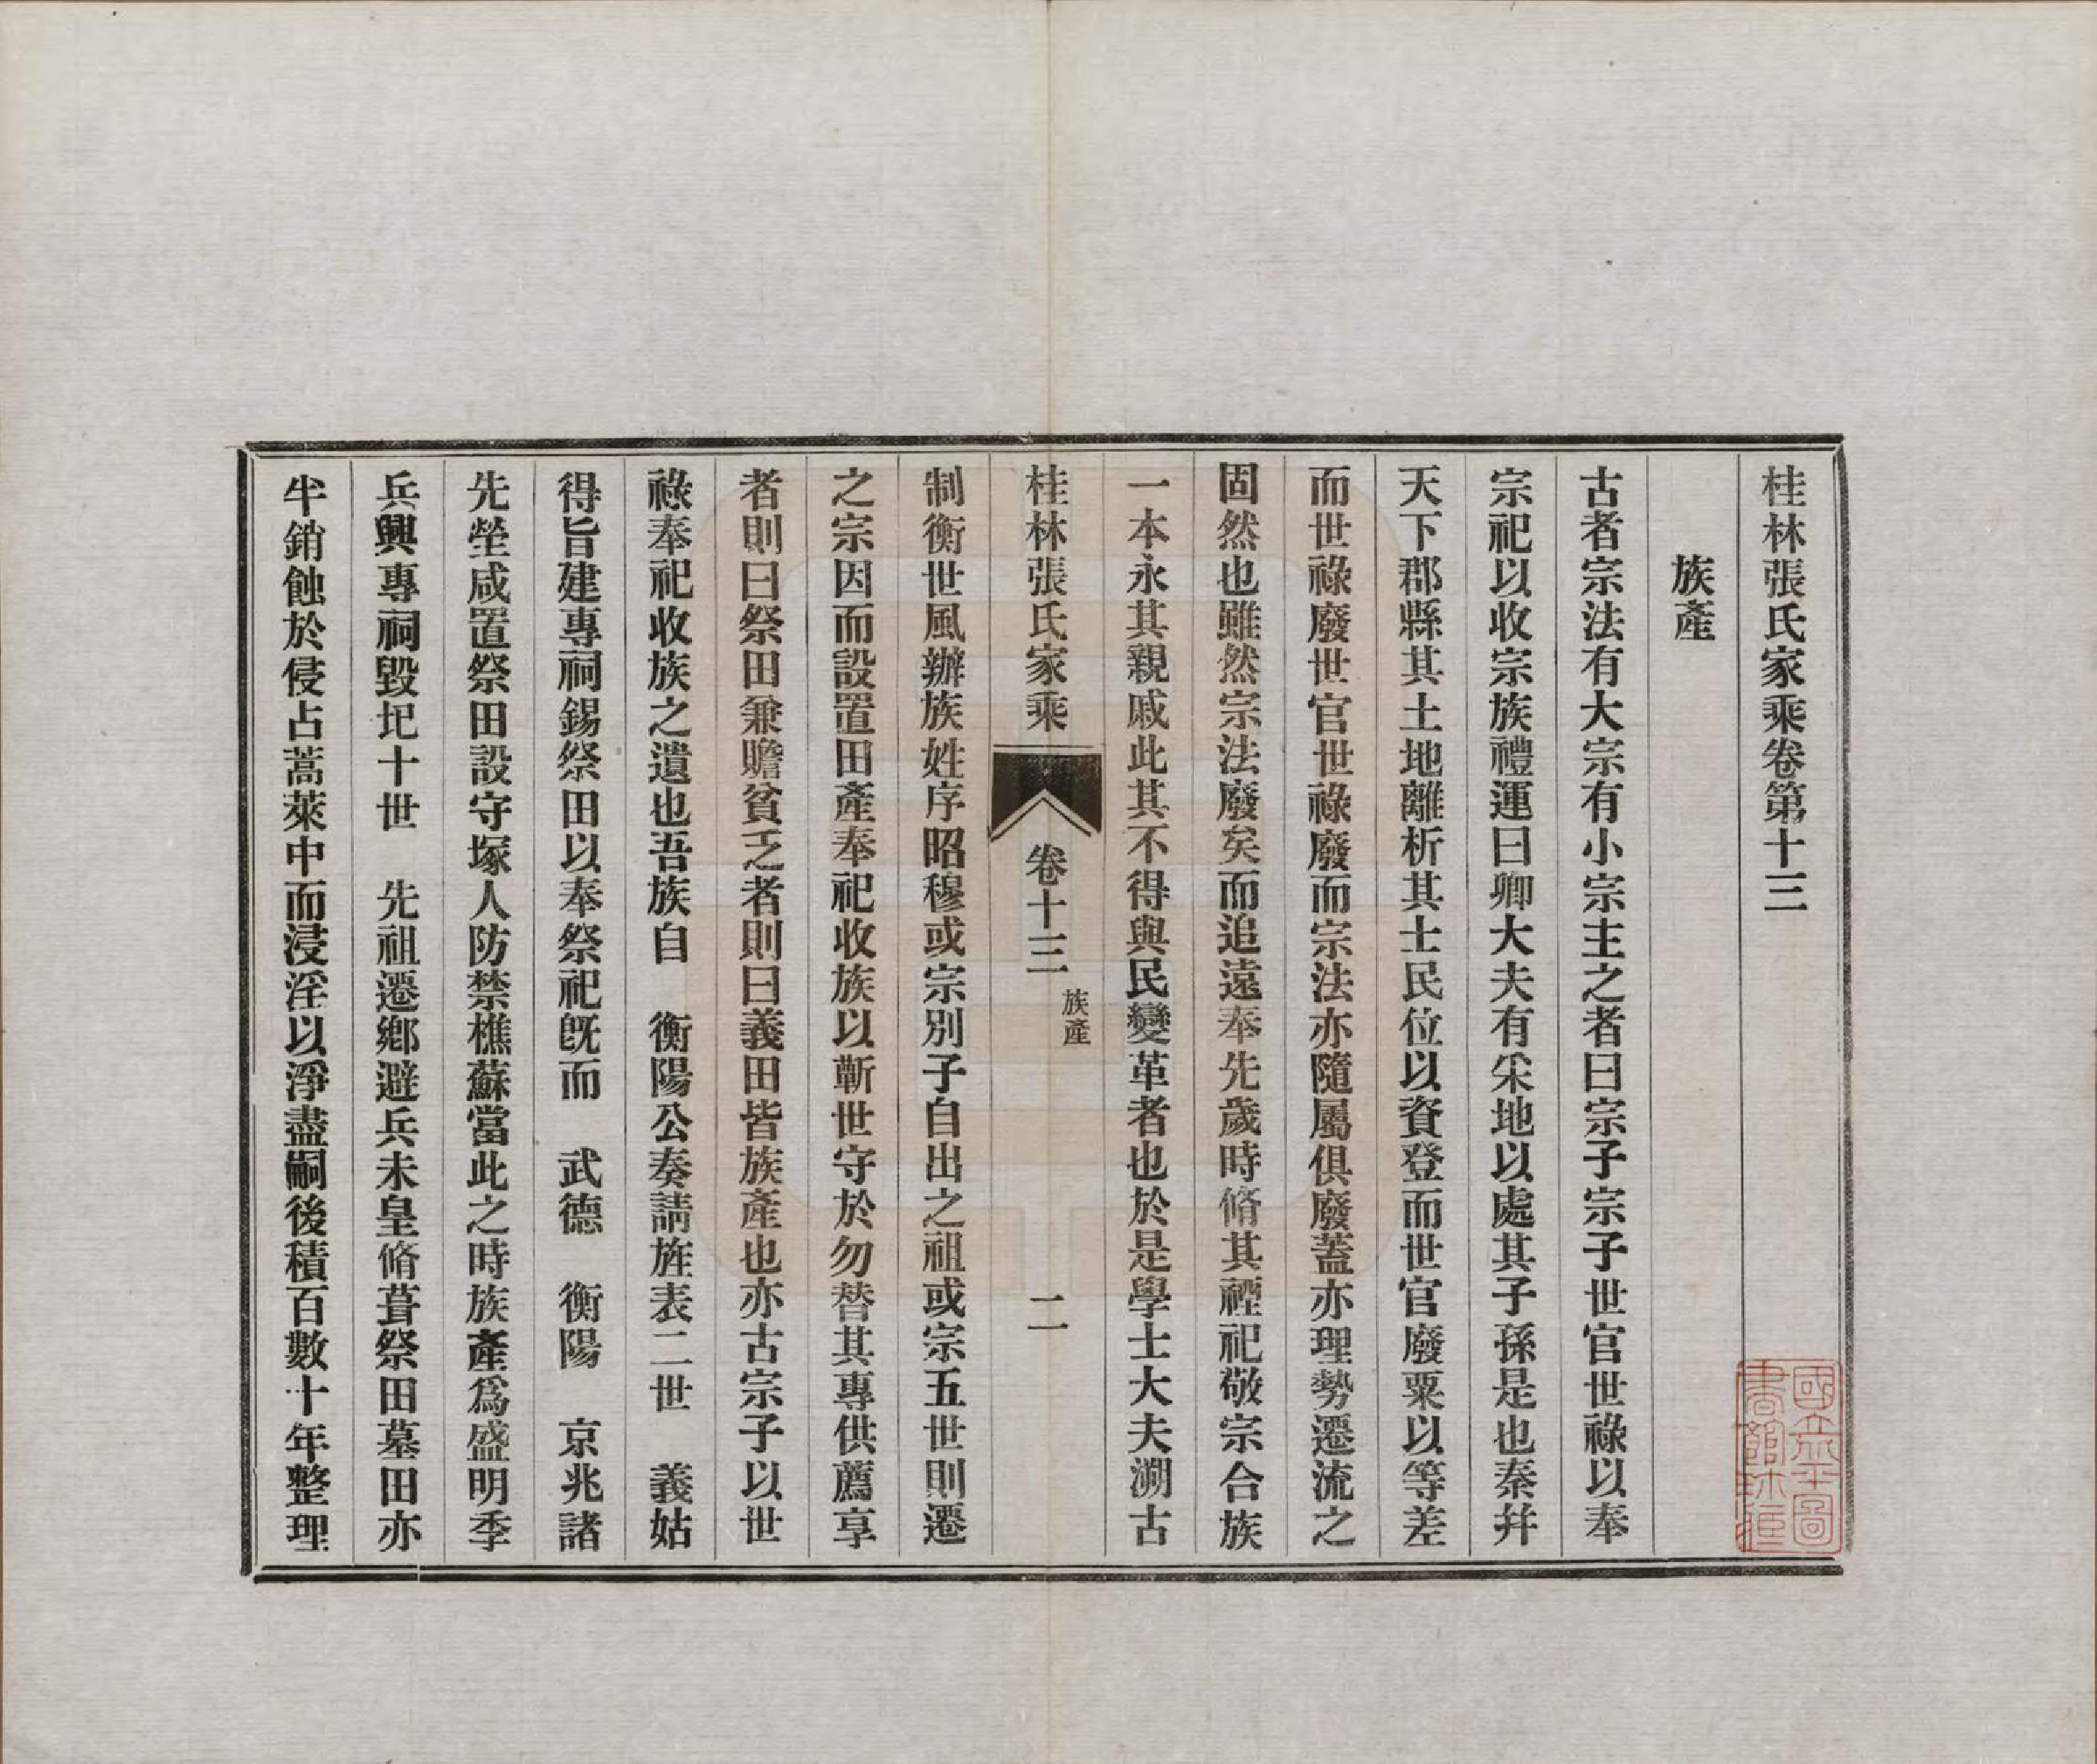 桂林張氏家乘卷第十三
族產
古者宗法有大宗有小宗主之者曰宗子宗子世官世祿以奉
宗祀以收宗族禮運曰卿大夫有采地以處其子孫是也秦幷
天下郡縣其土地離析其士民位以資登而世官廢粟以等差
而世祿廢世官世祿廢而宗法亦隨屬俱廢蓋亦理勢遷流之
固然也雖然宗法廢矣而追遠奉先歲時脩其禋祀敬宗合族
一本永其親戚此其不得與民變革者也於是學士大夫溯古
桂林張氏家乘 卷十三 族產 一
制衡世風辦族姓序昭穆或宗別子自出之祖或宗五世則遷
之宗因而設置田產奉祀收族以蘄世守於勿替其專供薦享
者則曰祭田兼贍貧乏者則曰義田皆族產也亦古宗子以世
祿奉祀收族之遺也吾族自 衡陽公奏請旌表二世 義姑
得旨建專祠錫祭田以奉祭祀旣而 武德 衡陽 京兆諸
先塋咸置祭田設守塚人防禁樵蘇當此之時族產爲盛明季
兵興專祠毀圮十世 先祖遷鄉避兵未皇脩葺祭田墓田亦
半銷蝕於侵占蒿萊中而浸淫以淨盡嗣後積百數十年整理
國立北平圖
書館珍藏